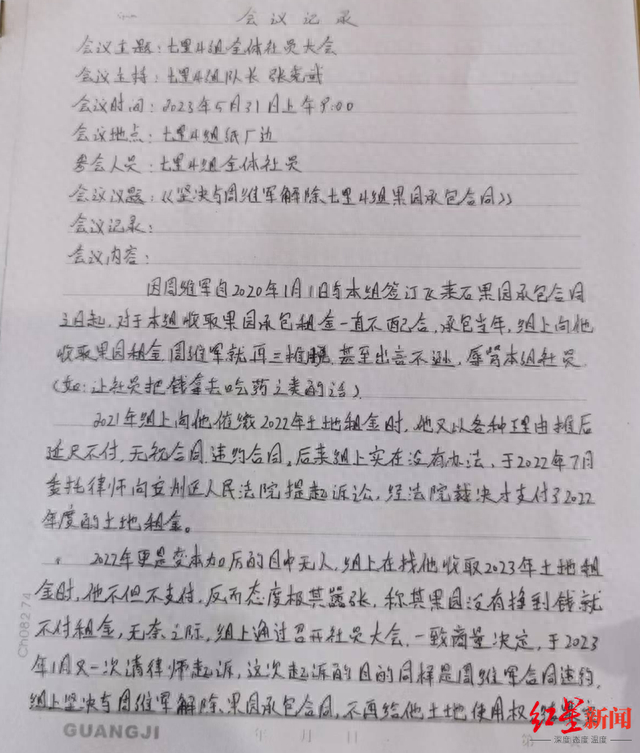 会议记录
会议主题：七里4组全体社员大会
会议主持：七里4组队长 张尧武
会议时间：2023年5月31日上午9:00
会议地点：七里4组纸厂边
参会人员：七里4组全体社员
会议议题：《坚决与周维军解除七里4组果园承包合同》
会议记录：
会议内容：
因周维军自2020年1月1日与本组签订飞来石果园承包合同
之日起，对于本组收取果园承包租金一直不配合，承包当年，组上向他
收取果园租金周维军就再三推脱，甚至出言不逊，辱骂本组社员
（如：让社员把钱拿去吃药之类的话）
2021年组上向他催缴2022年土地租金时，他又以各种理由推后
延迟不付，无视合同违约合同。后来组上实在没有办法，于2022年7月
委托律师向安州区人民法院提起诉讼，经法院裁决才支付了2022
年度的土地租金。
2022年更是变本加厉的目中无人，组上在找他收取2023年土地租
金时，他不但不支付，反而态度极其嚣张，称其果园没有挣到钱就
不付租金，无奈之际，组上通过召开社员大会，一致商量决定，于2023
年1月又一次请律师起诉，这次起诉的目的同样是周维军合同违约，
组上坚决与周维军解除果园承包合同，不再给他土地使用权
GUANGJI
年 月 日
第
Ch082.74
红星新闻
深度 态度 温度